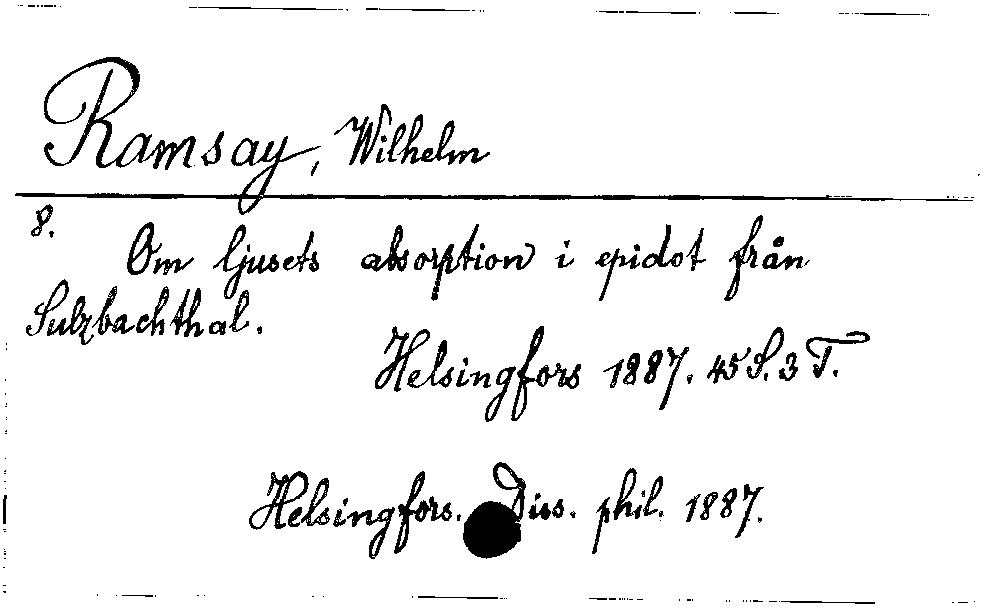 Ramsay, Wilhelm
8.
Om ljusets absorption i epidot från
Sulzbachthal.
Helsingfors 1887. 45 S. 3 T.
Helsingfors. Diss. phil. 1887.